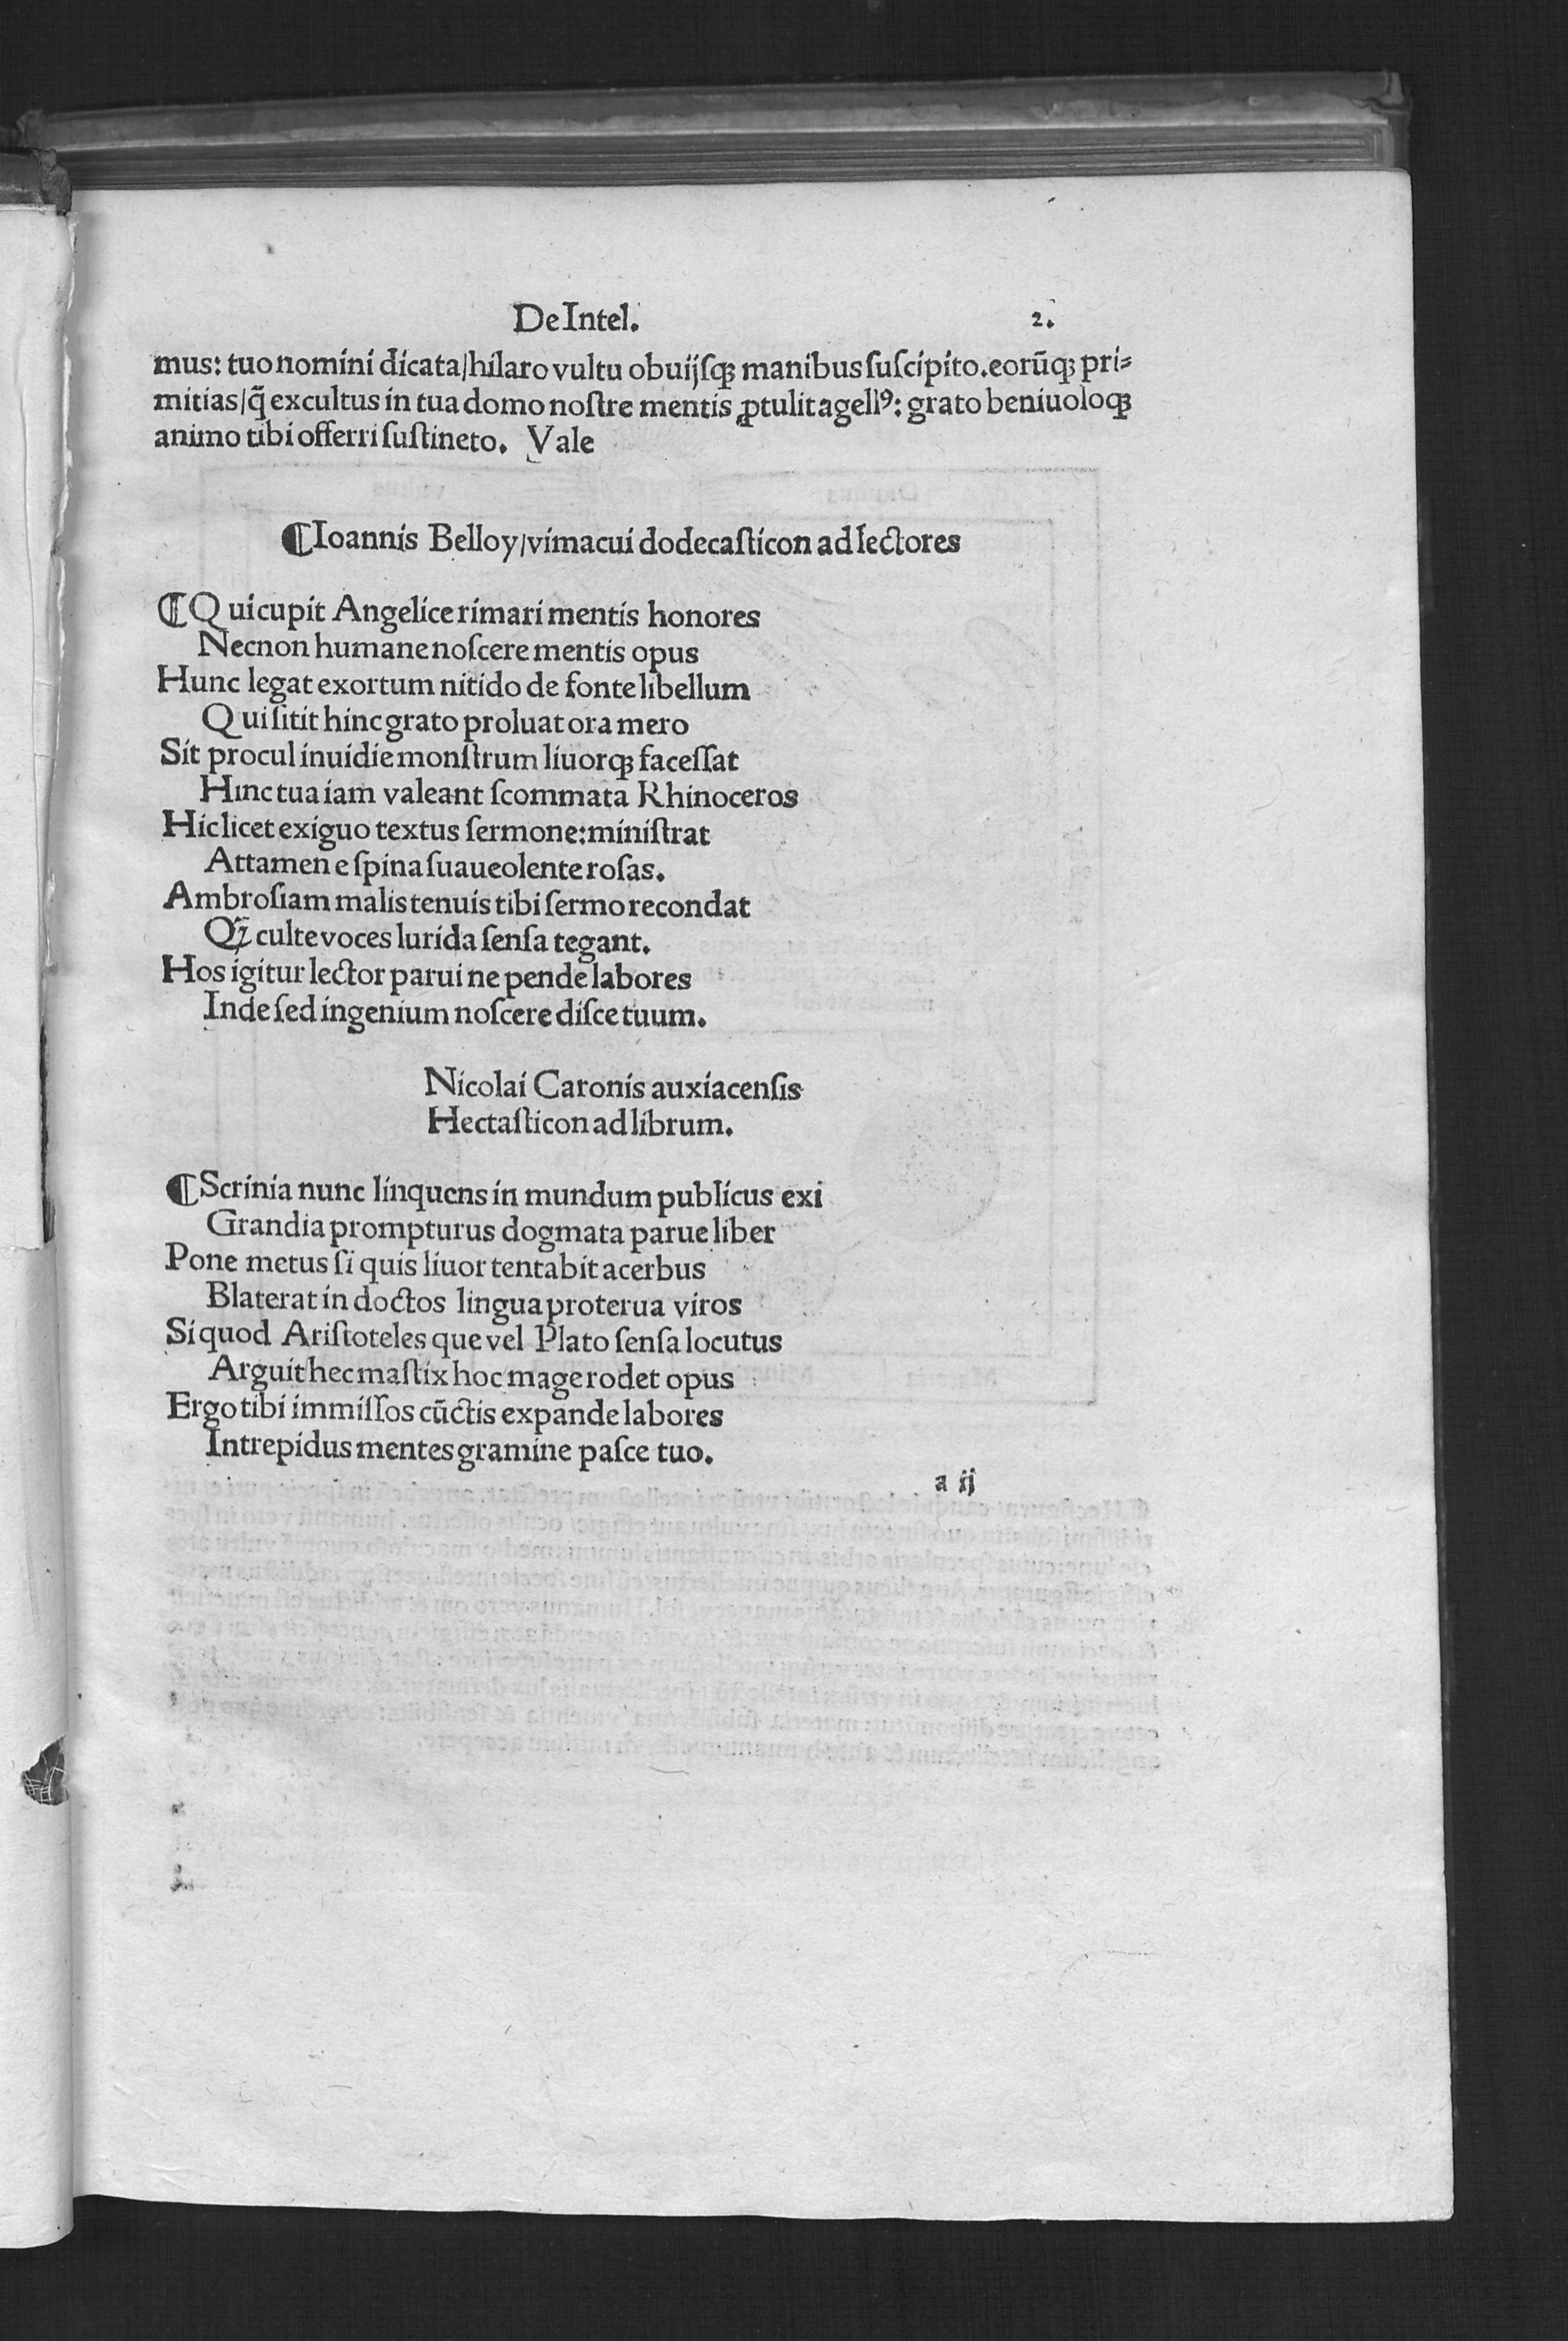 De Intel. 2.
mus: tuo nomini dicata/hilaro vultu obuijsqꝫ manibus suscipito.eorūqꝫ pri⸗
mitias/q̄ excultus in tua domo nostre mentis ꝓtulit agellꝰ: grato beniuoloqꝫ
animo tibi offerri sustineto. Vale
¶Ioannis Belloy/vimacui dodecasticon ad lectores
¶Qui cupit Angelice rimari mentis honores
Necnon humane noscere mentis opus
Hunc legat exortum nitido de fonte libellum
Qui sitit hinc grato proluat ora mero
Sit procul inuidie monstrum liuorqꝫ facessat
Hinc tua iam valeant scommata Rhinoceros
Hic licet exiguo textus sermone:ministrat
Attamen e spina suaueolente rosas.
Ambrosiam malis tenuis tibi sermo recondat
Qꝫ̄ culte voces lurida sensa tegant.
Hos igitur lector parui ne pende labores
Inde sed ingenium noscere disce tuum.
Nicolai Caronis auxiacensis
Hectasticon ad librum.
¶Scrinia nunc linquens in mundum publicus exi
Grandia prompturus dogmata parue liber
Pone metus si quis liuor tentabit acerbus
Blaterat in doctos lingua proterua viros
Si quod Aristoteles que vel Plato sensa locutus
Arguit hec mastix hoc mage rodet opus
Ergo tibi immissos cūctis expande labores
Intrepidus mentes gramine pasce tuo.
a ij